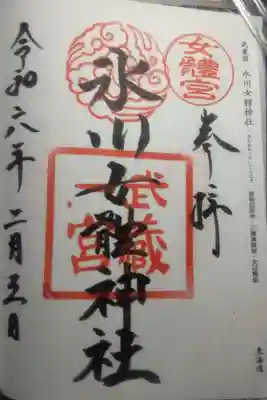 武蔵国 氷川女體神社
奉拝
女體宮
氷川女體神社
武蔵
一宮
令和六年 二月五日